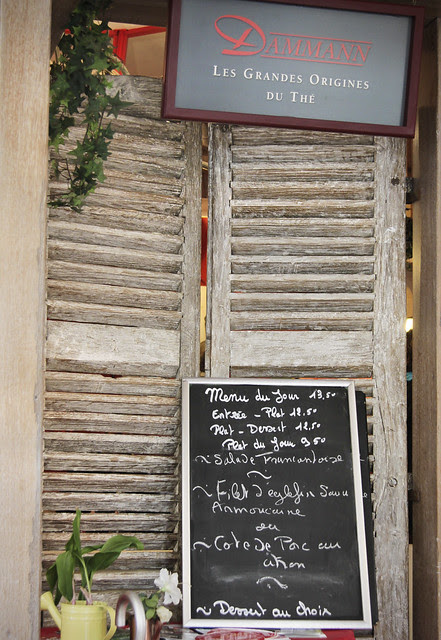 DAMMANN
LES GRANDES ORIGINES
DU THÉ
Menu du Jour 13,50
Entrée - Plat 12.50
Plat - Dessert 12.50
Plat du Jour 9,50
~ Salade
~
~ Filet d'eglefin Sauce
Armoricaine
ou
~ Cote de Porc au
~
~ Dessert au choix